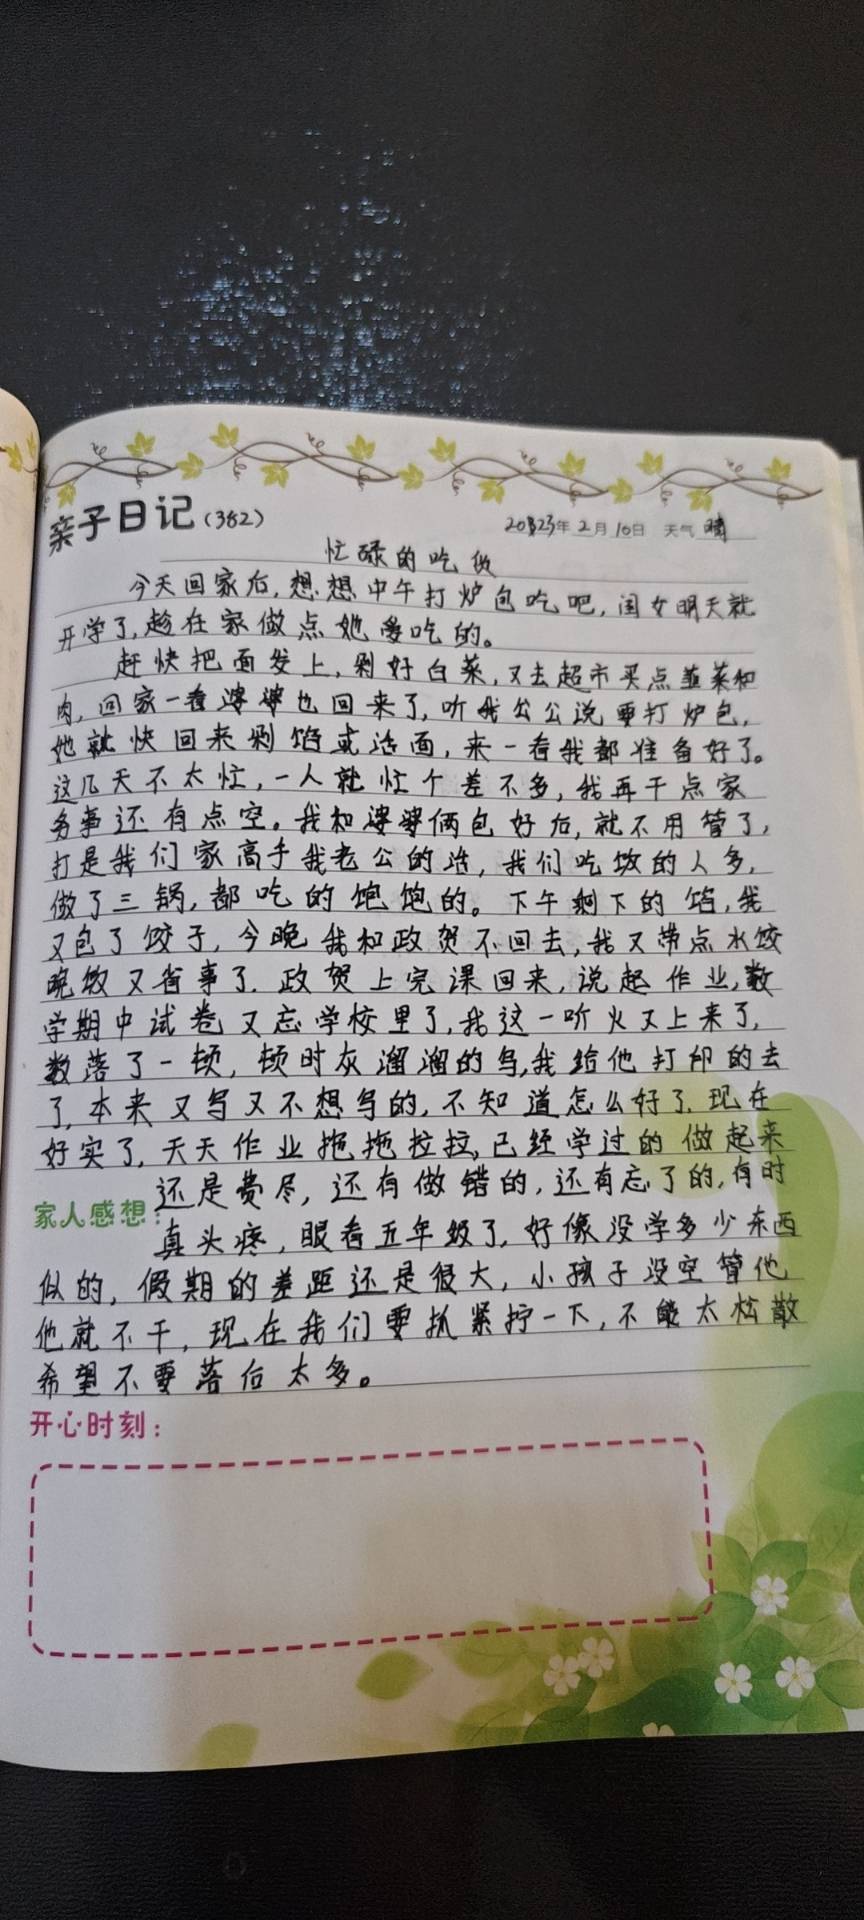 亲子日记(382)
2023年2月10日 天气 晴
忙碌的吃饭
今天回家后,想想中午打炉包吃吧,闺女明天就
开学了,趁在家做点她爱吃的。
赶快把面发上,剁好白菜,又去超市买点韭菜和
肉,回家一看婆婆也回来了,听我公公说要打炉包,
她就快回来剁馅或活面,来一看我都准备好了。
这几天不太忙,一人就忙个差不多,我再干点家
务事还有点空。我和婆婆俩包好后,就不用管了,
打是我们家高手我老公的活,我们吃饭的人多,
做了三锅,都吃的饱饱的。下午剩下的馅,我
又包了饺子,今晚我和政贺不回去,我又带点水饺
晚饭又省事了.政贺上完课回来,说起作业,数
学期中试卷又忘学校里了,我这一听火又上来了,
数落了一顿,顿时灰溜溜的写,我给他打印的去
了,本来又写又不想写的,不知道怎么好了.现在
好实了,天天作业拖拖拉拉,已经学过的做起来
还是费尽,还有做错的,还有忘了的,有时
家人感想:
真头疼,眼看五年级了,好像没学多少东西
似的,假期的差距还是很大,小孩子没空管他
他就不干,现在我们要抓紧拧一下,不能太松散
希望不要落后太多。
开心时刻: